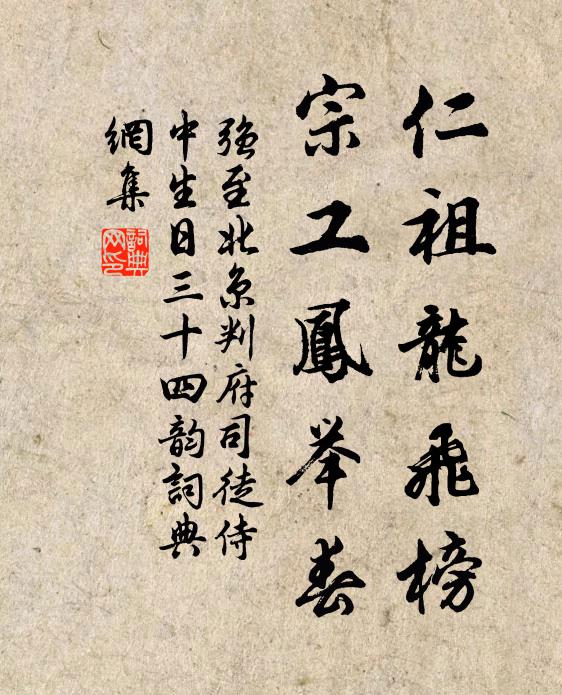 仁祖龍飛榜
宗工鳳举春
強至北京判府司徒侍
中生日三十四韵詞典
網集
詞典
网印